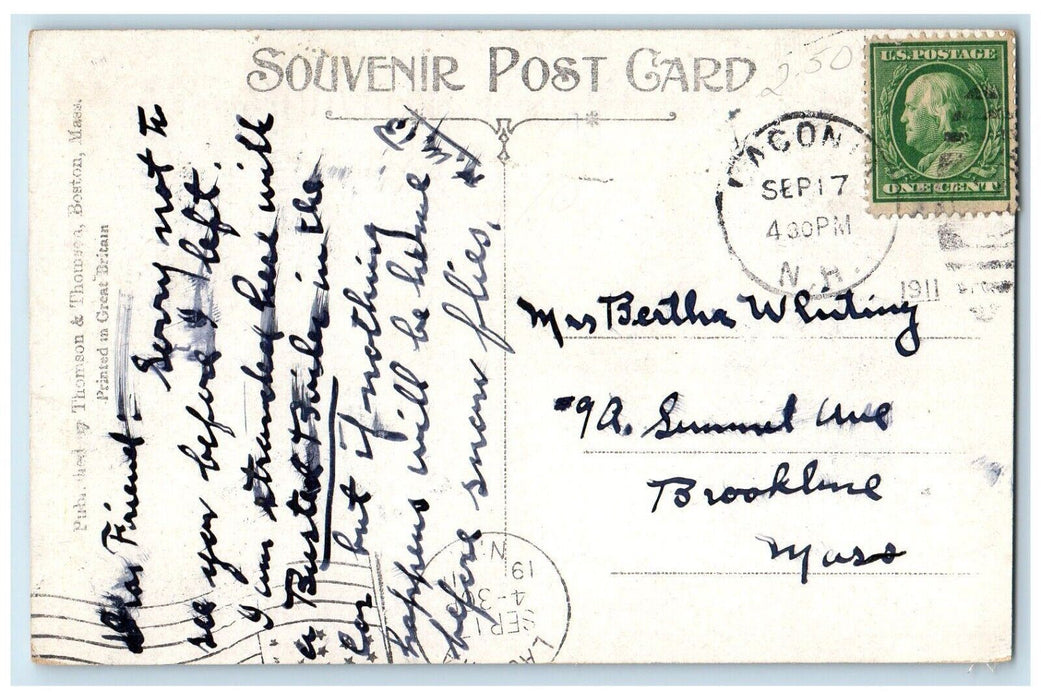 SOUVENIR POST CARD
2.50
U.S. POSTAGE
ONE CENT
LACON
SEP 17
4 30 PM
N.H.
1911
Published by Thomson & Thomson, Boston, Mass.
Printed in Great Britain
Dear Friend -
Sorry not to
see you before I left.
I am stranded here with
a Busted Boiler in the
car but if nothing
happens will be home
before snow flies.
Mrs Bertha Whiting
#9A. Summit Ave
Brookline
Mass
LAC
SEP 17
4-3
19
N.